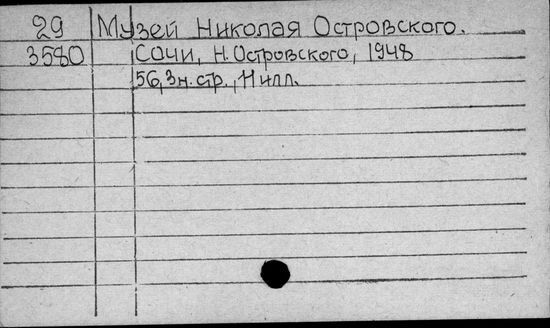 29 Музей Николая Островского.
3580 Сочи, Н. Островского, 1948
56, 3н. стр., 11 илл.